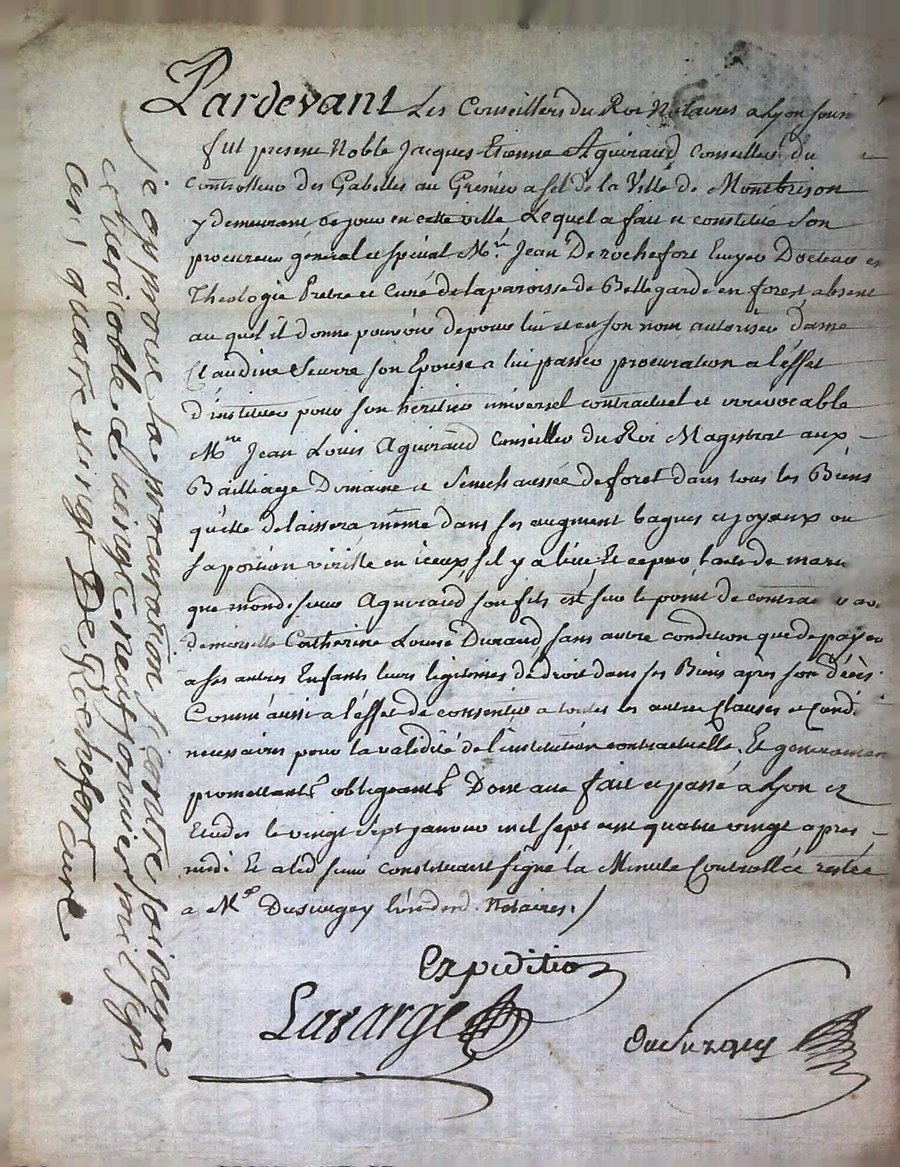 Pardevant Les Conseillers du Roi Notaires a Lyon sous
fut present Noble Jacques Etienne Aguiraud Conseiller du
Controlleur des Gabelles au Grenier a sel de la Ville de Montbrison
y demeurant ce jour en cette ville Lequel a fait et constitué Son
procureur général et spécial Mre. Jean De rochefort Ecuyer Docteur en
Théologie Pretre et Curé de la paroisse de Bellegarde en forest absent
au quel il donne pouvoir de pour lui et en son nom autoriser dame
Claudine Seurre son Epouse a lui passer procuration a l'effet
d'instituer pour son héritier universel contractuel et irrévocable
Mre Jean Louis Aguiraud Conseiller du Roi Magistrat aux
Bailliage Domaine et Senechaussée de foret dans tous les Biens
qu'elle delaissera même dans ses augment bagues et joyaux ou
sa portion virille en iceux s'il y a lieu Et ce pour l'acte de maria
que mondt. sieur Aguiraud son fils est sur le point de contrac avec
demoiselle Catherine Louise Durand sans autre condition que de payer
a ses autres Enfants leurs légitimes de droit dans ses Biens après son décès.
Comm'aussi a l'effet de consentir a toutes les autres Clauses et Cond.
necessaires pour la validité de l'institution contractuelle. Et généralemen
promettants obligeants Dont acte fait et passé a Lyon ez
Etudes le vingt sept janvier mil sept cent quatre vingt apres
midi Et a led sieur constituant signé la Minute Controllée restée
a Me Dusurgey l'un desd. Notaires./
Expedition
Lavarge
Dusurgey
je approuve la procuration ci contre sincere
et veritable d vingt neuf janvier mil sept
cens quatre vingt De Rochefort curé